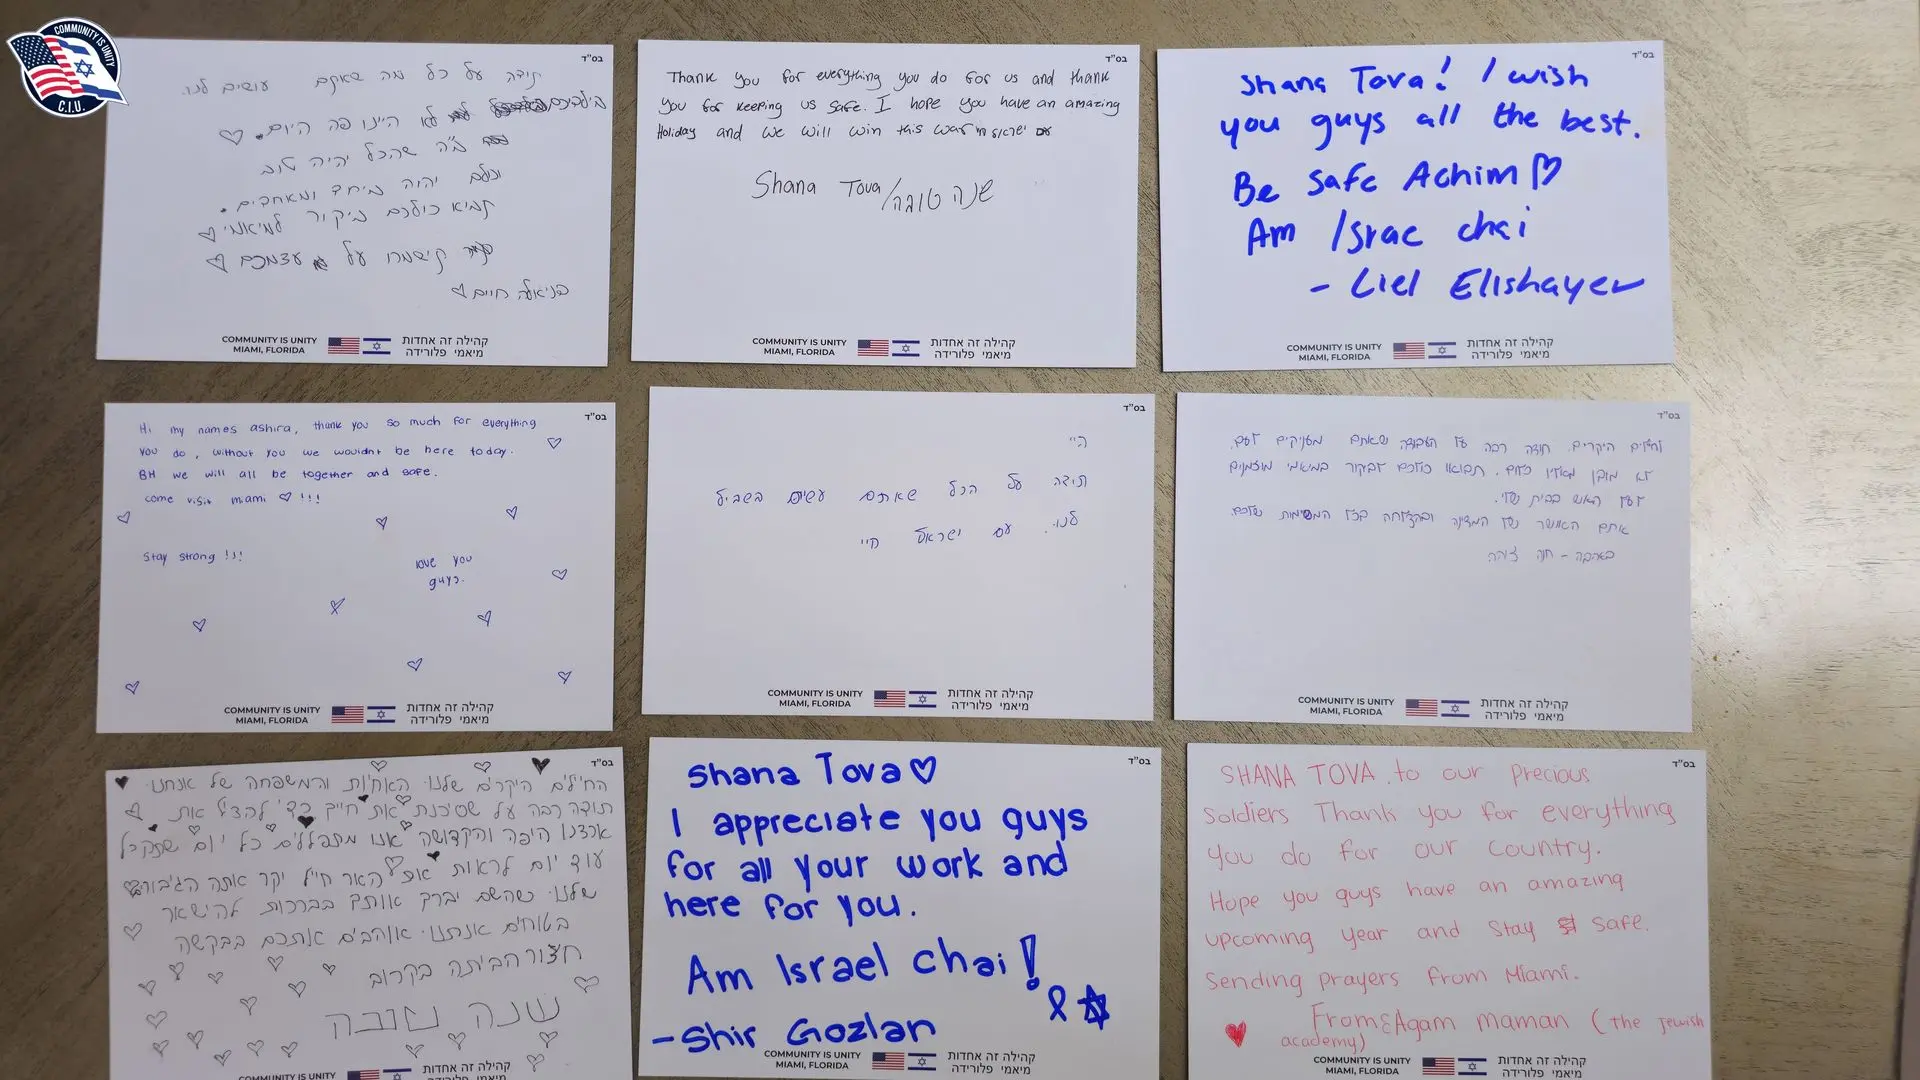 COMMUNITY IS UNITY
C.I.U.
בס"ד
תודה על כל מה שאתם עושים לנו.
לא היינו פה היום.
שהכל יהיה טוב
וכולם יהיה ביחד ומאוחדים.
למיאמי
על עצמכם
חיים
COMMUNITY IS UNITY
MIAMI, FLORIDA
קהילה זה אחדות
מיאמי פלורידה
בס"ד
Thank you for everything you do for us and thank
you for keeping us safe. I hope you have an amazing
Holiday and we will win this war
Shana Tova/שנה טובה
COMMUNITY IS UNITY
MIAMI, FLORIDA
קהילה זה אחדות
מיאמי פלורידה
בס"ד
Shana Tova! I wish
you guys all the best.
Be safe Achim
Am Israe chai
- Liel Elishayev
COMMUNITY IS UNITY
MIAMI, FLORIDA
קהילה זה אחדות
מיאמי פלורידה
בס"ד
Hi my names ashira, thank you so much for everything
you do, without you we wouldnt be here today.
BH we will all be together and safe.
come visit miami !!!
Stay strong !!!
love you
guys.
COMMUNITY IS UNITY
MIAMI, FLORIDA
קהילה זה אחדות
מיאמי פלורידה
בס"ד
היי
תודה על הכל שאתם עשים בשביל
לנו. עם ישראל חיי
COMMUNITY IS UNITY
MIAMI, FLORIDA
קהילה זה אחדות
מיאמי פלורידה
בס"ד
היקרים. תודה רבה על העבודה שאתם מעניקים לעם.
לא מובן מאליו כלום. תבואו כולכם לביקור במיאמי מוזמנים
בבית שלי.
אתם האוצר של המדינה ובהצלחה בכל המשימות שלכם.
באהבה - חנה
COMMUNITY IS UNITY
MIAMI, FLORIDA
קהילה זה אחדות
מיאמי פלורידה
בס"ד
החיילים היקרים שלנו האחיות והמשפחה של אנחנו
תודה רבה על שסיכנת את חייך כדי להציל את
ארצנו היפה והקדושה אנו מתפללים כל יום שתקבל
עוד יום לראות את האר חייל יקר אתה הגיבור
שלנו שהשם יברך אותך בברכות להישאר
בטוחים אנתנו אוהבים אתכם בבקשה
חצור הביתה בקרוב
שנה טובה
COMMUNITY IS UNITY
קהילה זה אחדות
מיאמי פלורידה
בס"ד
Shana Tova
I appreciate you guys
for all your work and
here for you.
Am Israel chai!
-Shir Gozlan
COMMUNITY IS UNITY
MIAMI, FLORIDA
קהילה זה אחדות
מיאמי פלורידה
בס"ד
SHANA TOVA to our precious
soldiers Thank you for everything
you do for our country.
Hope you guys have an amazing
upcoming year and stay safe.
Sending prayers from Miami.
From: Agam maman (the Jewish
academy)
COMMUNITY IS UNITY
MIAMI, FLORIDA
קהילה זה אחדות
מיאמי פלורידה